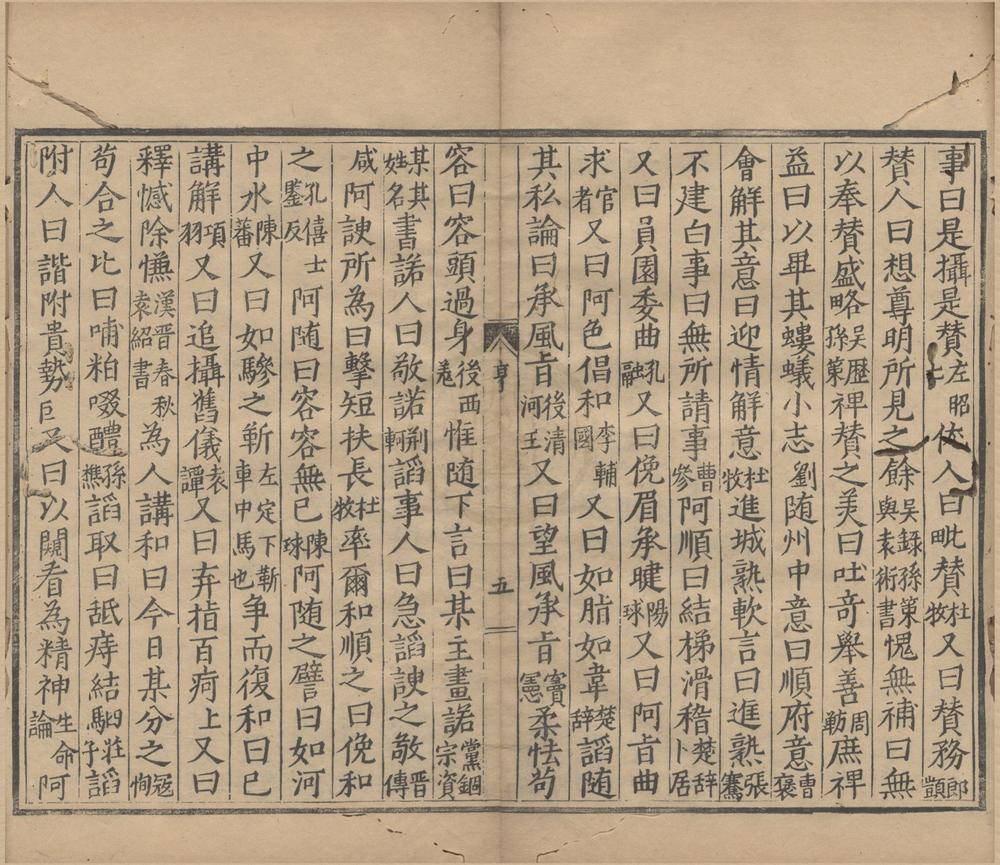 事曰是攝是賛左昭七依人曰毗賛杜牧又曰賛務郎顗
賛人曰想尊明所見之餘吳録孫策與袁術書愧無補曰無
以奉賛盛略吳歴孫策禆賛之美曰吐奇舉善周勒庶禆
益曰以畢其螻蟻小志劉随州中意曰順府意曹褒
會解其意曰迎情解意杜牧進城熟軟言曰進熟張騫
不建白事曰無所請事曹參阿順曰結梯滑稽楚辭卜居
又曰員園委曲孔融又曰俛眉承睫陽球又曰阿㫖曲
求官者又曰阿色倡和李輔國又曰如脂如韋楚辭謟随
其私論曰承風㫖後清河王又曰望風承㫖竇憲柔怯苟
容曰容頭過身後西羗惟随下言曰某主畫諾黨錮宗資
某其姓名書諾人曰敬諾荆軻謟事人曰急謟諛之敬晋傳
咸阿諛所為曰擊短扶長杜牧率爾和順之曰俛和
之孔僖鑒反士阿随曰容容無已陳球阿随之譬曰如河
中水陳蕃又曰如驂之靳左定下靳車中馬也争而復和曰已
講解項羽又曰追攝舊儀袁譚又曰弃指百疴上又曰
釋憾除憮漢晋春秋袁紹書為人講和曰今日某分之宼恂
苟合之比曰哺粕啜醴孫樵謟取曰舐痔結駟莊子謟
附人曰諧附貴勢巨又曰以闚看為精神生命論阿
亨
五